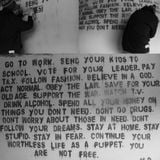 GO TO WORK. SEND YOUR KIDS TO
SCHOOL. VOTE FOR YOUR LEADER. PAY
TAX. FOLLOW FASHION. BELIEVE IN A GOD.
ACT NORMAL. OBEY THE LAW. SAVE FOR YOUR
OLD AGE. SUPPORT THE WAR. WATCH T.V.
DRINK ALCOHOL. SPEND ALL YOUR MONEY ON
THINGS YOU DON'T NEED. DON'T DO DRUGS.
DON'T WORRY ABOUT THOSE IN NEED. DON'T
FOLLOW YOUR DREAMS. STAY AT HOME. STAY
STUPID. STAY IN FEAR. CONTINUE YOUR
WORTHLESS LIFE AS A PUPPET. YOU
ARE NOT FREE.